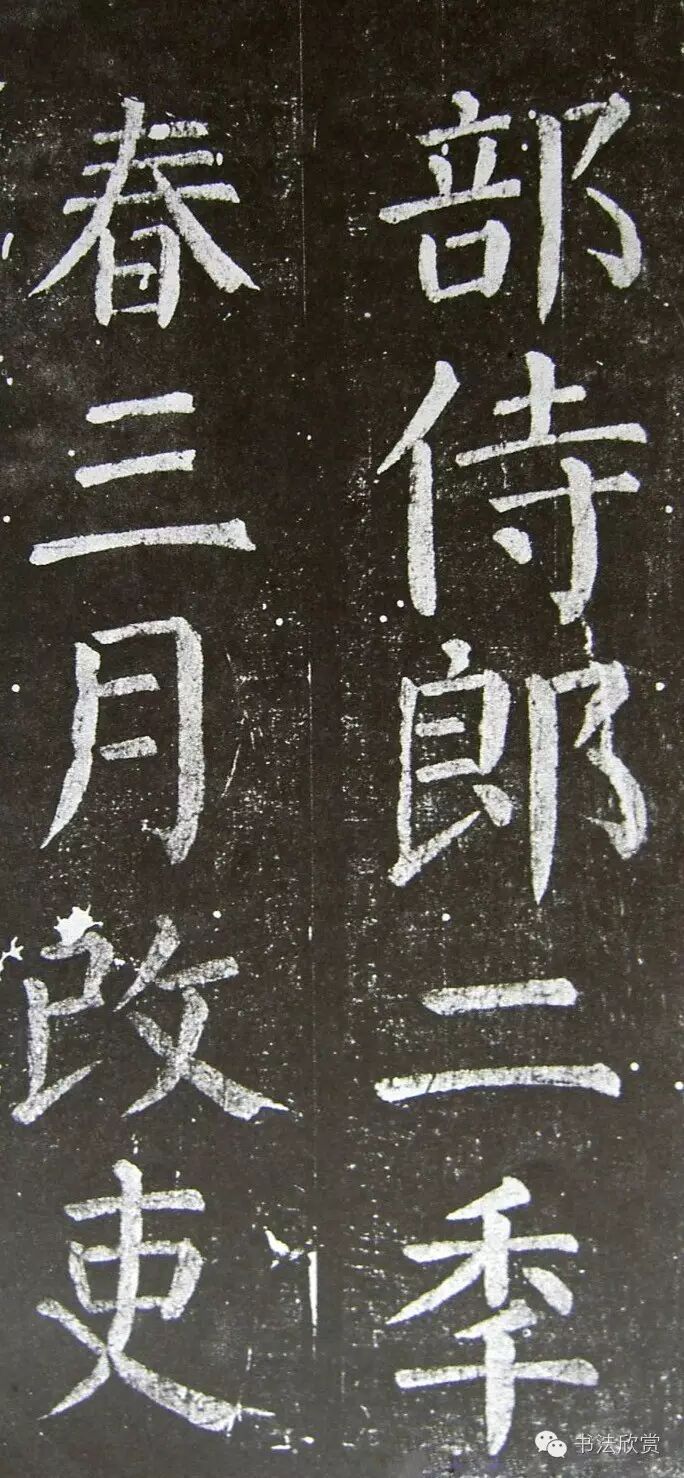 部侍郎二季
春三月改吏
书法欣赏